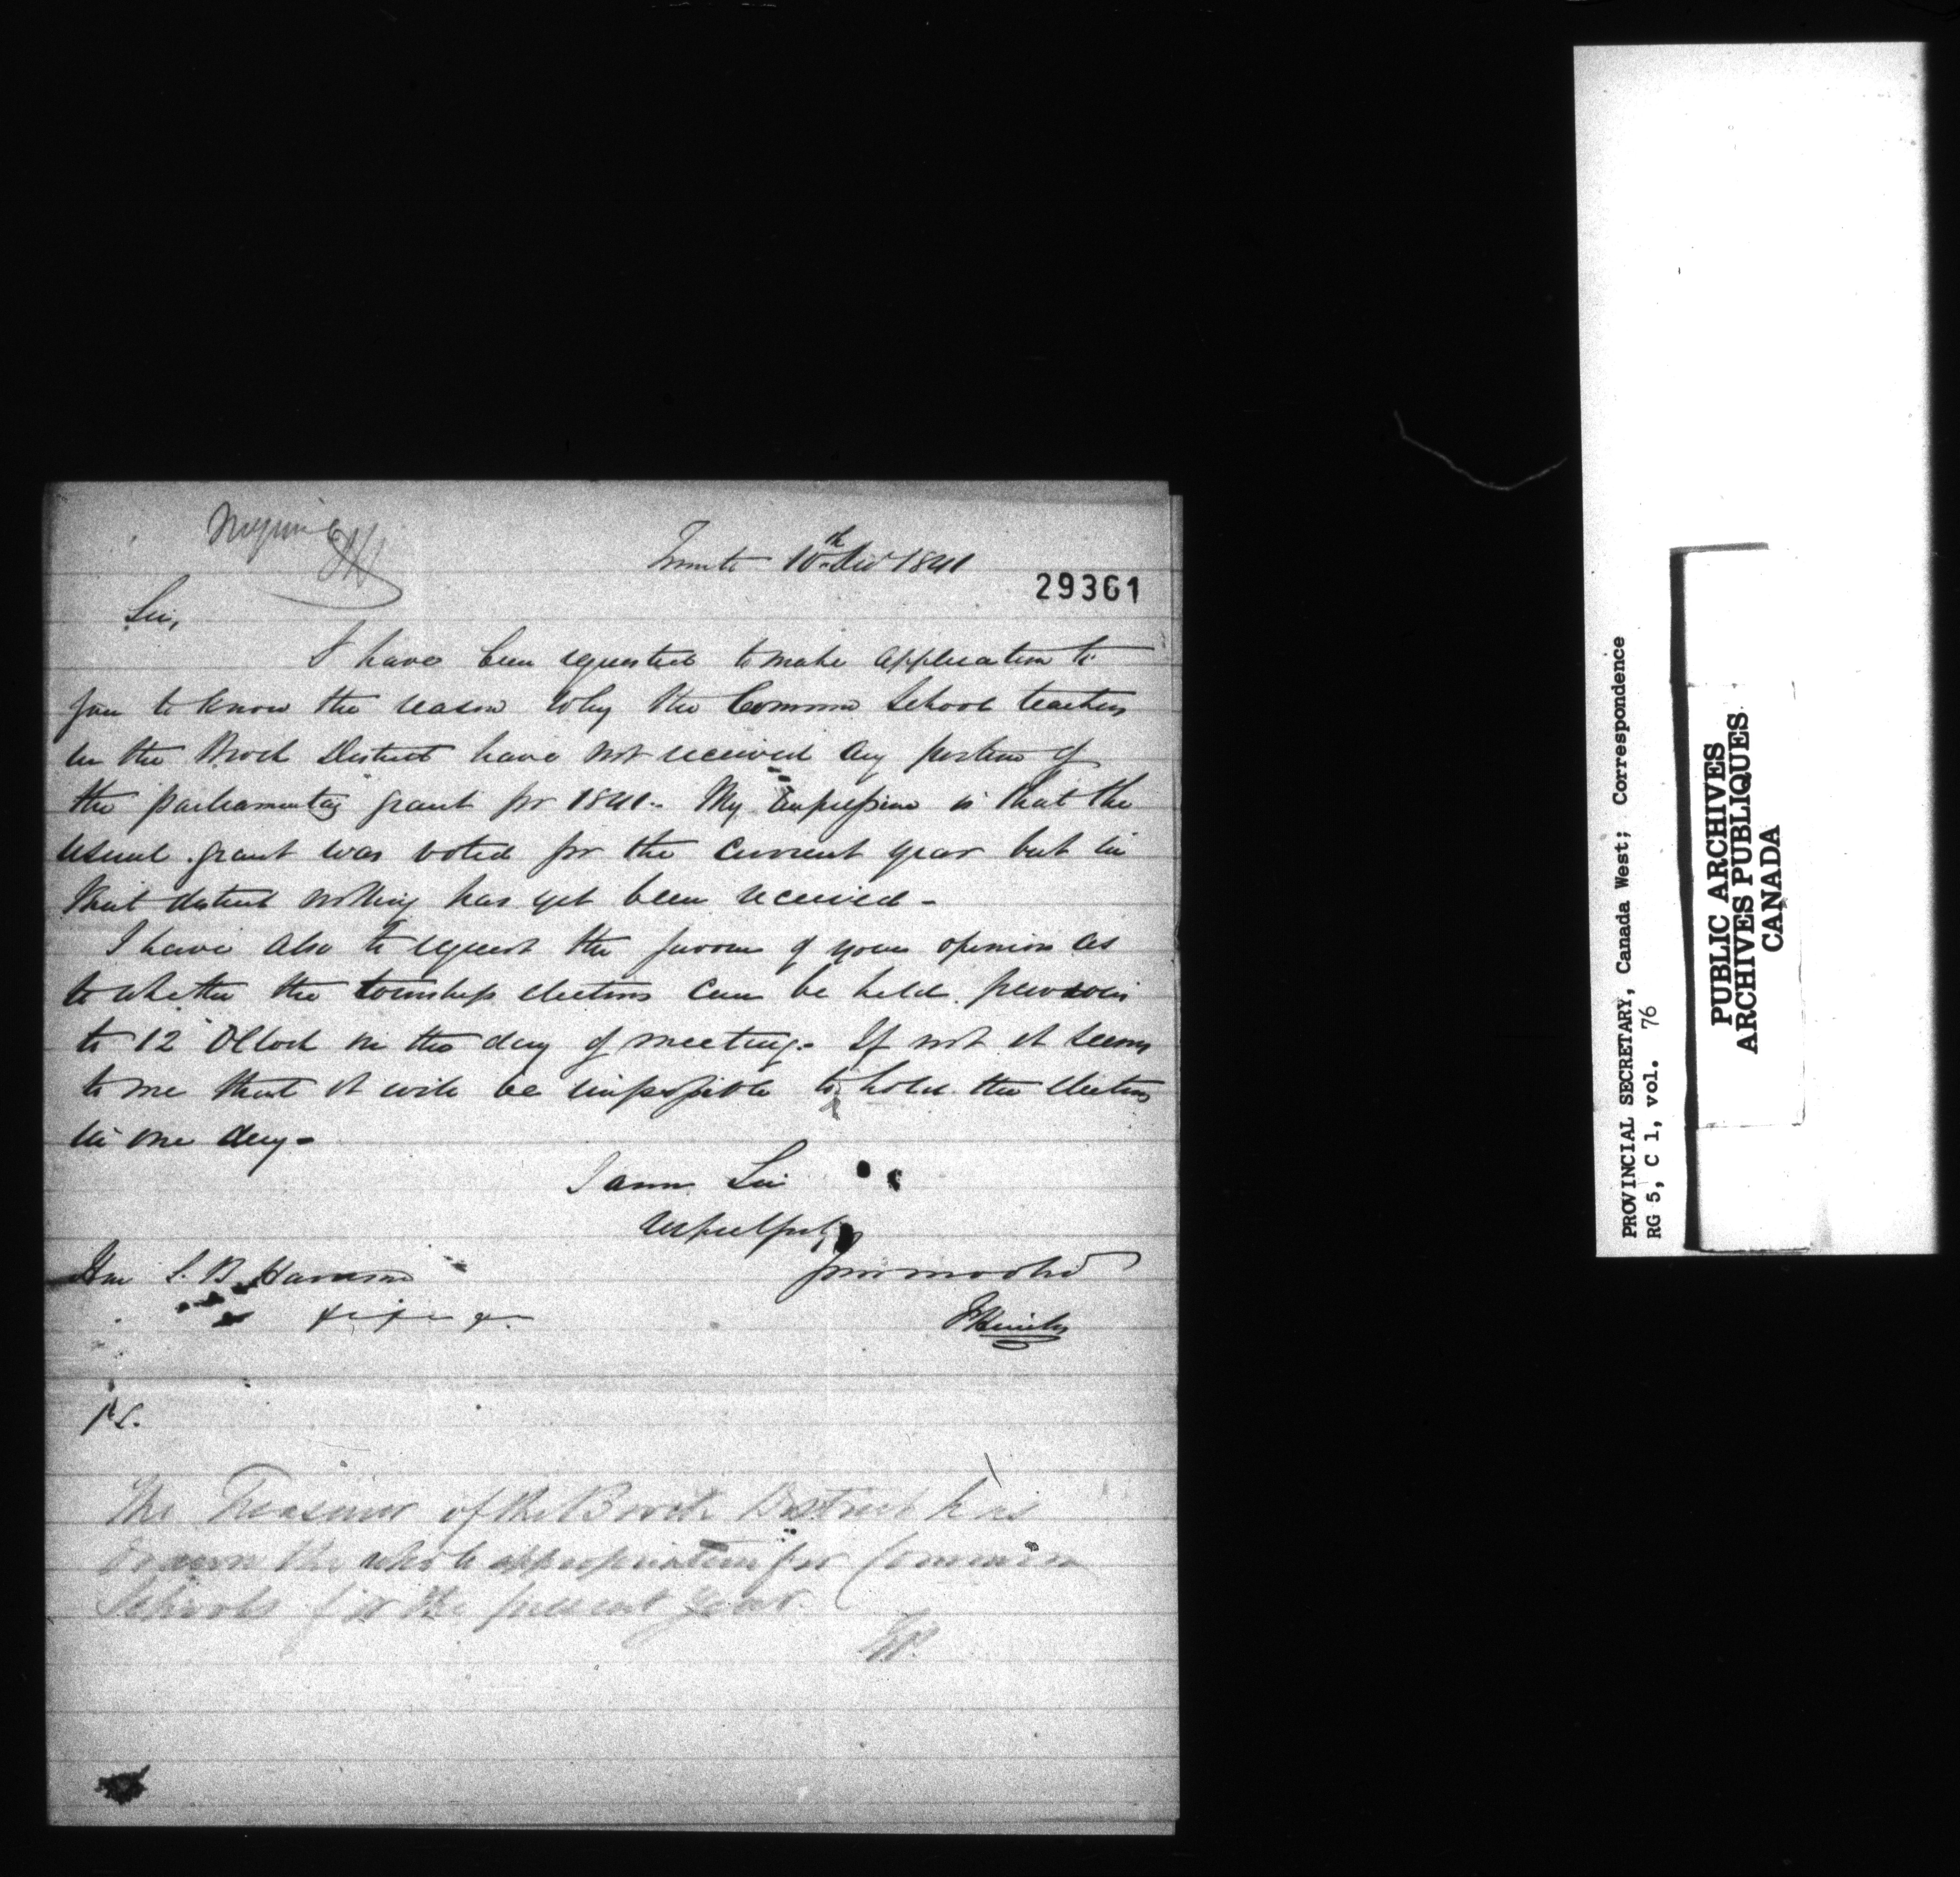 Toronto 10th Dec 1841
29361
Sir,
I have been requested to make application to
you to know the reason why the Common School teachers
in the Brock District have not received any portion of
the parliamentary grant for 1841. My impression is that the
usual grant was voted for the current year but in
that district nothing has yet been received -
I have also to request the favour of your opinion as
to whether the township elections can be held previous
to 12 OClock on the day of meeting. If not it seems
to me that it will be impossible to hold the election
in one day -
I am Sir
respectfully
Hon S. B. Harrison
Your mo obt
F Hincks
P.S.
The Treasurer of the Brock District has
drawn the whole appropriation for Common
Schools for the present year.
PROVINCIAL SECRETARY, Canada West; Correspondence
RG 5, C 1, vol. 76
PUBLIC ARCHIVES
ARCHIVES PUBLIQUES
CANADA